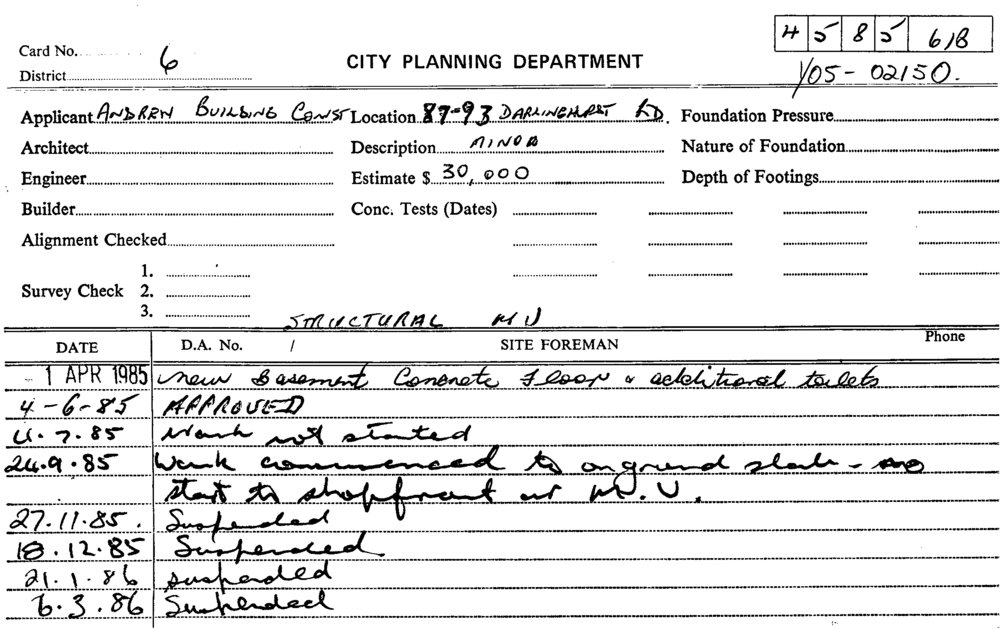 4 5 8 5 61B
Card No. 6 CITY PLANNING DEPARTMENT
District Y05-02150.
Applicant ANDREW BUILDING CONST Location 87-93 DARLINGHURST RD. Foundation Pressure
Architect Description MINOR Nature of Foundation
Engineer Estimate $ 30,000 Depth of Footings
Builder Conc. Tests (Dates)
Alignment Checked
1.
Survey Check 2.
3.
STRUCTURAL M.V
DATE D.A. No. / SITE FOREMAN Phone
- 1 APR 1985 new Basement Concrete Floor & additional toilets
4-6-85 APPROVED
4.7.85 Work not started
24.9.85 Work commenced to onground slab - no
start to shopfront or M.V.
27.11.85. Suspended
18.12.85 Suspended.
21.1.86 suspended
6.3.86 Suspended